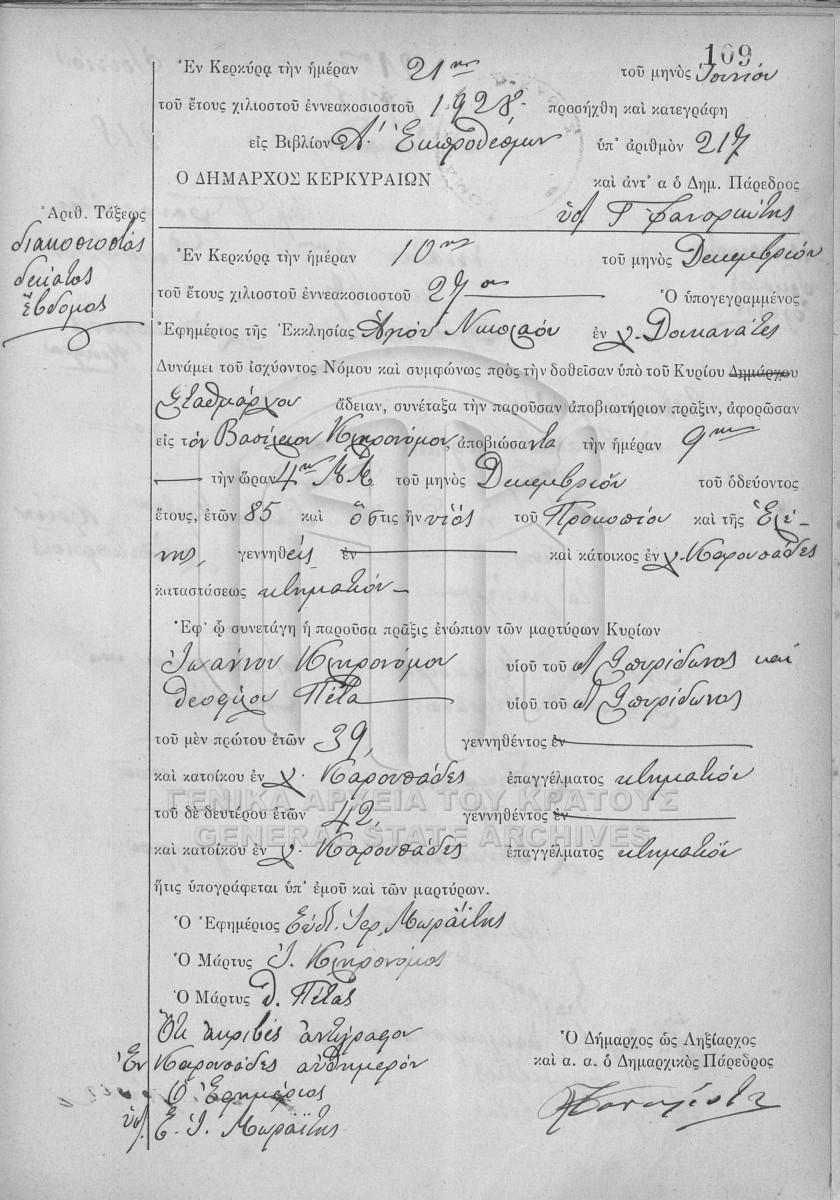 109
Ἐν Κερκύρᾳ τὴν ἡμέραν 21ην τοῦ μηνὸς Ἰουνίου
τοῦ ἔτους χιλιοστοῦ ἐννεακοσιοστοῦ 1928 προσήχθη καὶ κατεγράφη
εἰς Βιβλίον Α. Ἐκπροθέσμων ὑπ' ἀριθμὸν 217
Ο ΔΗΜΑΡΧΟΣ ΚΕΡΚΥΡΑΙΩΝ καὶ ἀντ' α ὁ Δημ. Πάρεδρος
Ἀριθ. Τάξεως
διακοσιοστὸς
δέκατος
ἕβδομος
Ἐν Κερκύρᾳ τὴν ἡμέραν 10ην τοῦ μηνὸς Δεκεμβρίου
τοῦ ἔτους χιλιοστοῦ ἐννεακοσιοστοῦ 27ου Ὁ ὑπογεγραμμένος
Ἐφημέριος τῆς Ἐκκλησίας Ἁγίου Νικολάου ἐν χ.
Δυνάμει τοῦ ἰσχύοντος Νόμου καὶ συμφώνως πρὸς τὴν δοθεῖσαν ὑπὸ τοῦ Κυρίου Δημάρχου
Σταθμάρχου ἄδειαν, συνέταξα τὴν παροῦσαν ἀποβιωτήριον πρᾶξιν, ἀφορῶσαν
εἰς τὸν Βασίλειον Κληρονόμον, ἀποβιώσαντα τὴν ἡμέραν 9ην
τὴν ὥραν 4ην Μ.Μ. τοῦ μηνὸς Δεκεμβρίου τοῦ ὁδεύοντος
ἔτους, ἐτῶν 85 καὶ ὅστις ἦν υἱὸς τοῦ Προκοπίου καὶ τῆς Ἑλέ-
νης, γεννηθεὶς ἐν καὶ κάτοικος ἐν χ. Καρουσάδες
καταστάσεως κτηματίου
Ἐφ' ᾧ συνετάγη ἡ παροῦσα πρᾶξις ἐνώπιον τῶν μαρτύρων Κυρίων
Ἰωάννου Κληρονόμου υἱοῦ τοῦ Σπυρίδωνος καὶ
Θεοφίλου Πέτα υἱοῦ τοῦ Σπυρίδωνος
τοῦ μὲν πρώτου ἐτῶν 39, γεννηθέντος ἐν
καὶ κατοίκου ἐν χ. Καρουσάδες ἐπαγγέλματος κτηματίου
τοῦ δὲ δευτέρου ἐτῶν 42, γεννηθέντος ἐν
καὶ κατοίκου ἐν χ. Καρουσάδες ἐπαγγέλματος κτηματίου
ἥτις ὑπογράφεται ὑπ' ἐμοῦ καὶ τῶν μαρτύρων.
Ὁ Ἐφημέριος Εὐδ. Ἱερ. Μωραΐτης
Ὁ Μάρτυς Ἰ. Κληρονόμος
Ὁ Μάρτυς Θ. Πέτας
Ὅτι ἀκριβὲς ἀντίγραφον
Ἐν Καρουσάδες αὐθημερόν
Ὁ Ἐφημέριος
ὑπ. Ε. Ἰ. Μωραΐτης
Ὁ Δήμαρχος ὡς Ληξίαρχος
καὶ α. α. ὁ Δημαρχικὸς Πάρεδρος
ΓΕΝΙΚΑ ΑΡΧΕΙΑ ΤΟΥ ΚΡΑΤΟΥΣ
GENERAL STATE ARCHIVES